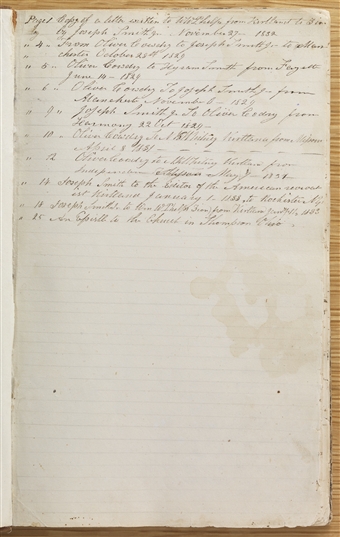 Page 1 Copy of a letter written to W W Phelps from Kirtland to Zion
by Joseph Smith Jr. November 27 – 1832
" 4 " From Oliver Cowdry to Joseph Smith Jr. to Man
chester October 28th 1829
" 5 " Oliver Cowdry to Hyrum Smith from Fayette
June 14 – 1829
" 6 " Oliver Cowdry To Joseph Smith Jr from
Manchester November 6 – 1829
" 9 " Joseph Smith Jr To Oliver Cowdry from
Harmony 22 Oct 1829 –
" 10 – Oliver Cowdry to Kirtland from
April 8 1831 –
" 12 Oliver Cowdry to Kirtland from
Independence May 7 – 1831 –
" 14 Joseph Smith to the Editor of the American revivist
at Kirtland January 1. 1833 to Rochester N.Y
" 18 Joseph Smith Jr to Bro W W Phelps Zion from Kirtland
" 25 An Epistle to the Church in Thompson Ohio